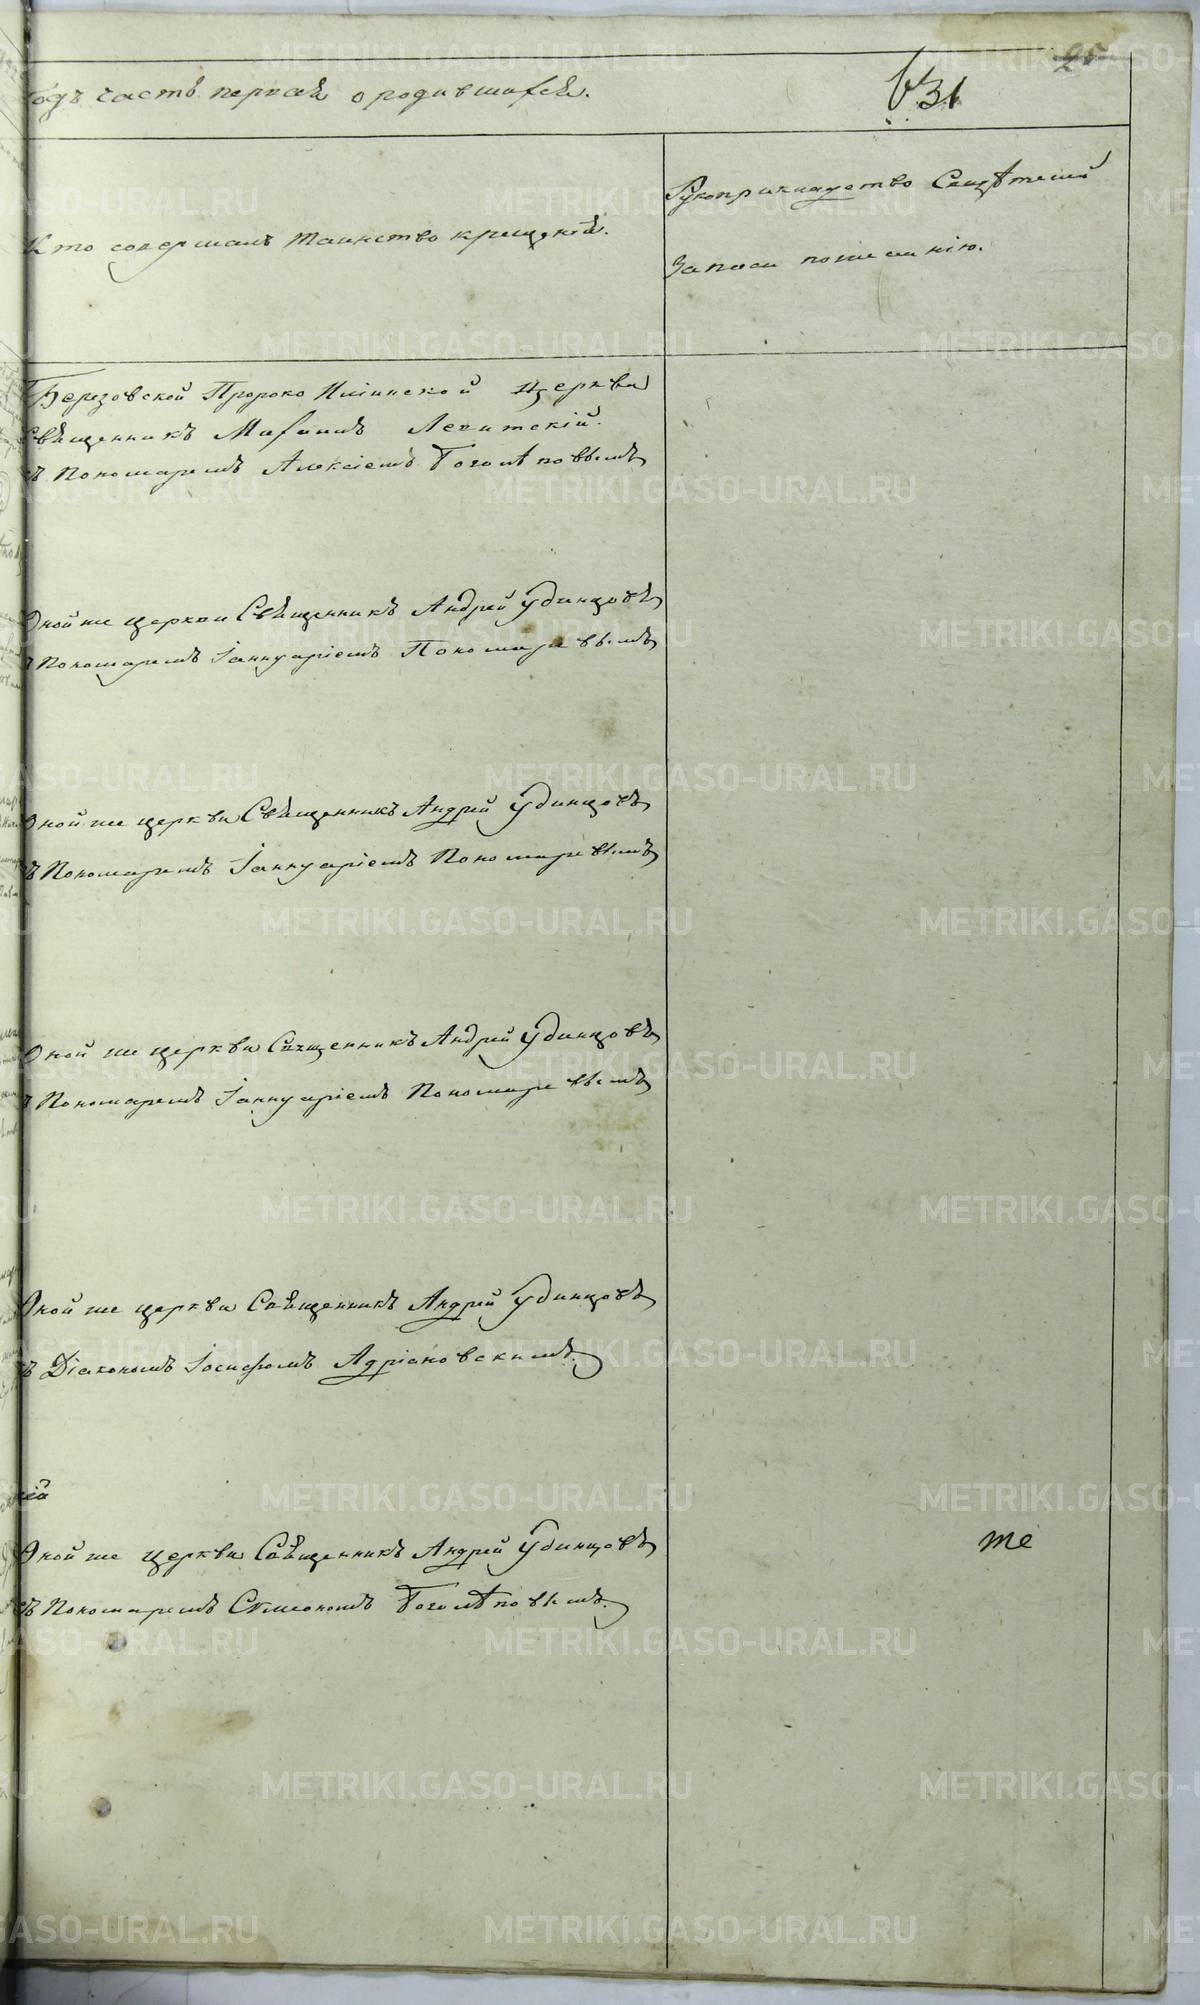 годъ часть первая о родившихся.
631
25
Кто совершалъ таинство крещенія.
Рукоприкладство Свидѣтелей
записи по желанію.
Березовской Пророко Ильинской церкви
Священникъ Михаилъ Левитскій.
съ Пономаремъ Алексіемъ Боголѣповымъ
Оной же церкви Священникъ Андрей Удинцовъ
съ Пономаремъ Іаннуаріемъ Пономаревымъ
Оной же церкви Священникъ Андрей Удинцовъ
съ Пономаремъ Іаннуаріемъ Пономаревымъ
Оной же церкви Священникъ Андрей Удинцовъ
съ Пономаремъ Іаннуаріемъ Пономаревымъ
Оной же церкви Священникъ Андрей Удинцовъ
съ Діакономъ Іосифомъ Адріановскимъ.
Оной же церкви Священникъ Андрей Удинцовъ
те
съ Пономаремъ Симеономъ Боголѣповымъ.
METRIKI.GASO-URAL.RU